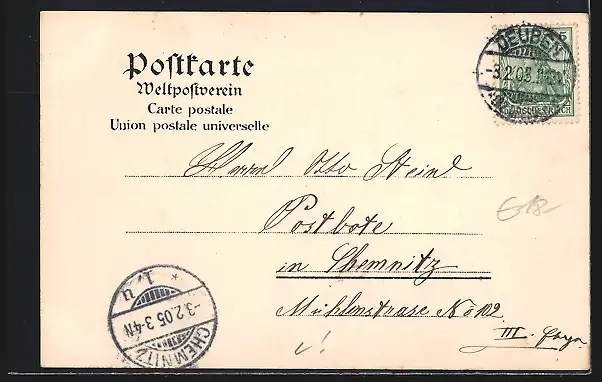 Postkarte
Weltpostverein
Carte postale
Union postale universelle
DEUBEN
-3.2.05
DEUTSCHES REICH
Herrn Otto Steinl
Postbote
in Chemnitz
Mühlenstrase No 102
III.
618
CHEMNITZ
-3.2.05 3-4N
* 1. u